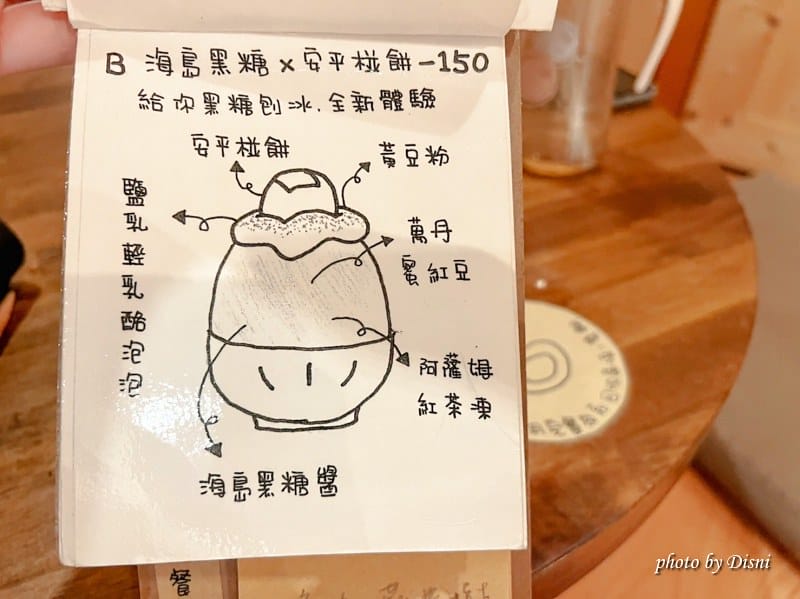 B 海島黑糖×安平椪餅-150
給你黑糖刨冰.全新體驗
安平椪餅
黃豆粉
鹽乳輕乳酪泡泡
萬丹
蜜紅豆
阿薩姆
紅茶凍
海島黑糖醬
餐
photo by Disni